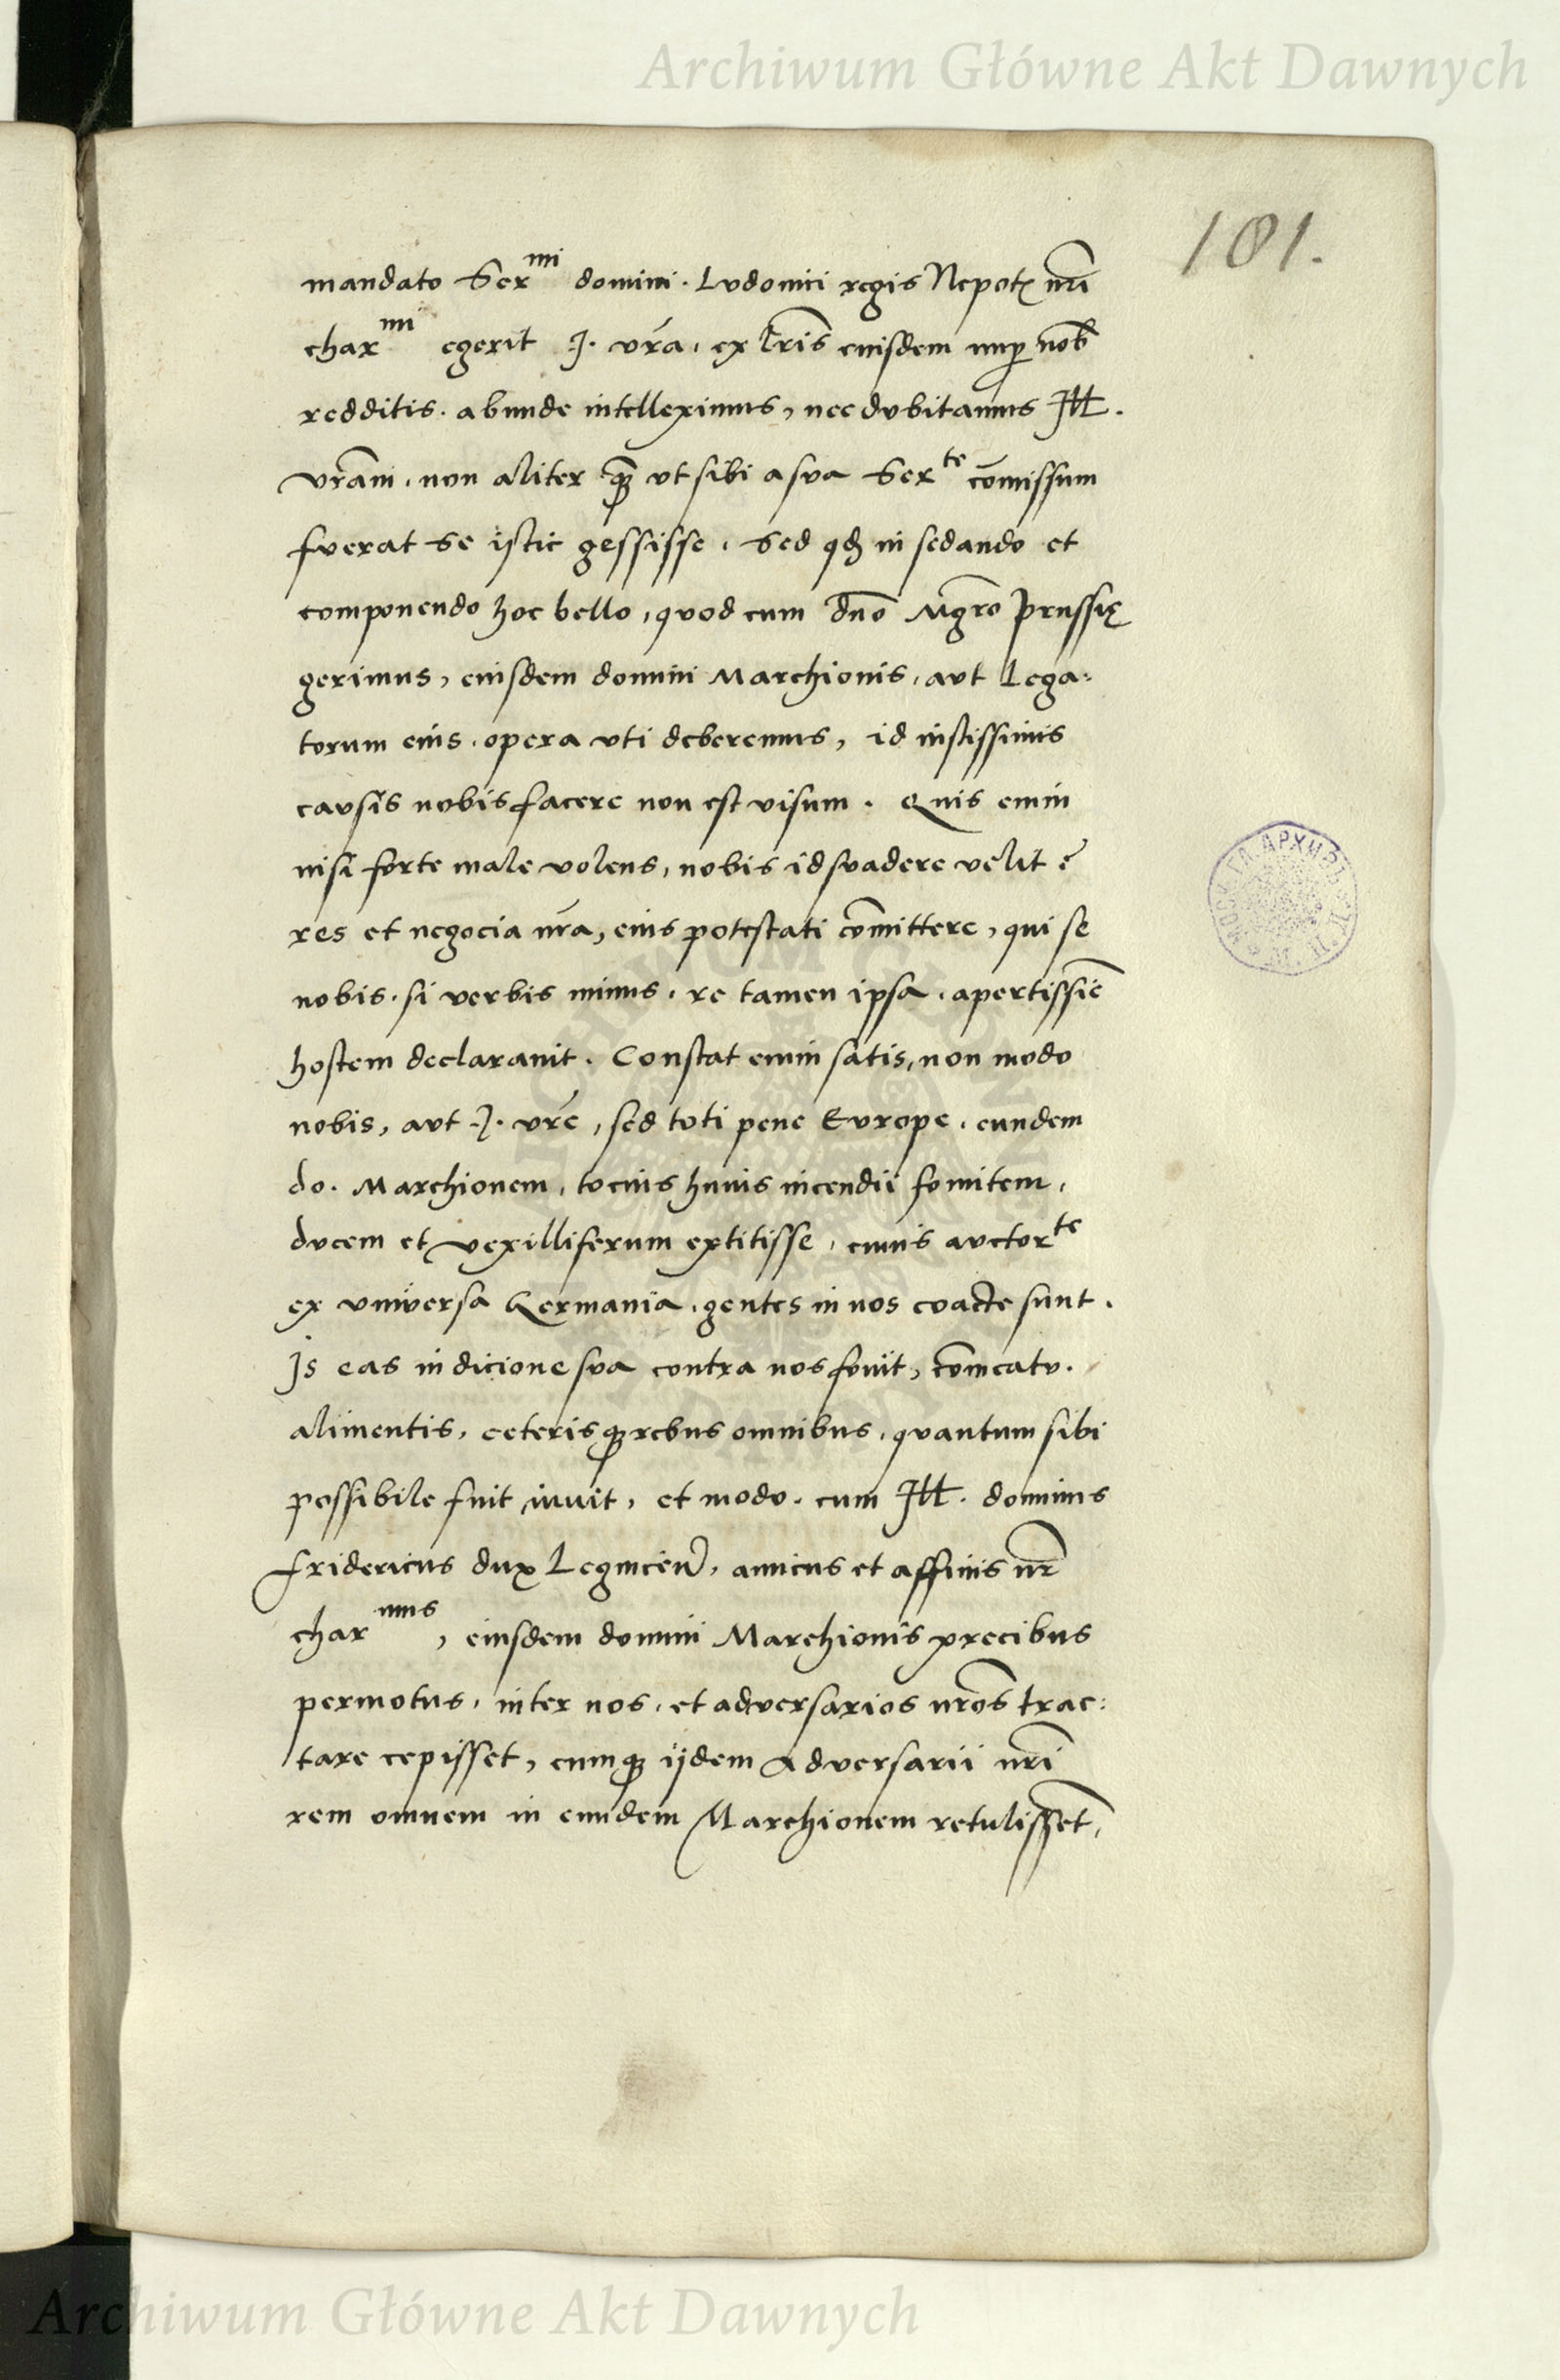 Archiwum Główne Akt Dawnych
181.
mandato Ser^mi domini. Lvdovici regis Nepotis nrĩ
char^mi egerit J. vr̃a, ex lr̃is eiusdem nup nob̃
redditis. abunde intelleximus, nec dvbitamus Ill.
vr̃am, non aliter q̃ vt sibi a sva Ser^te cõmissum
fverat se istic gessisse, sed qđ in sedando et
componendo hoc bello, qvod cum dño Mgr̃o Prussię
gerimus, eiusdem domini Marchionis, avt Lega:
torum eius. opera vti deberemus, id iustissimis
cavsis nobis facere non est visum. Quis enim
nisi forte male volens, nobis id svadere velit ẽ
res et negocia nr̃a, eius potestati cõmittere, qui se
nobis. si verbis minus. re tamen ipsa. apertissiẽ
hostem declaravit. Constat enim satis, non modo
nobis, avt J. vrẽ, sed toti pene Evrope. eundem
do. Marchionem, tocius huius incendii fomitem,
dvcem et vexilliferum extitisse, cuius avctor^te
ex vniversa Germania. gentes in nos coacte sunt.
Is eas in dicione sva contra nos fovit, cõmeatv.
alimentis, ceterisqꝫ rebus omnibus, qvantum sibi
possibile fuit iuvit, et modo. cum Ill. dominus
fridericus dux Legnicen̄, amicus et affinis nr̃
char^mus, eiusdem domini Marchionis precibus
permotus, inter nos, et adversarios nr̃os trac:
tare cepisset, cumqꝫ ijdem Adversarii nrĩ
rem omnem in eundem Marchionem retulisset̃,
Archiwum Główne Akt Dawnych